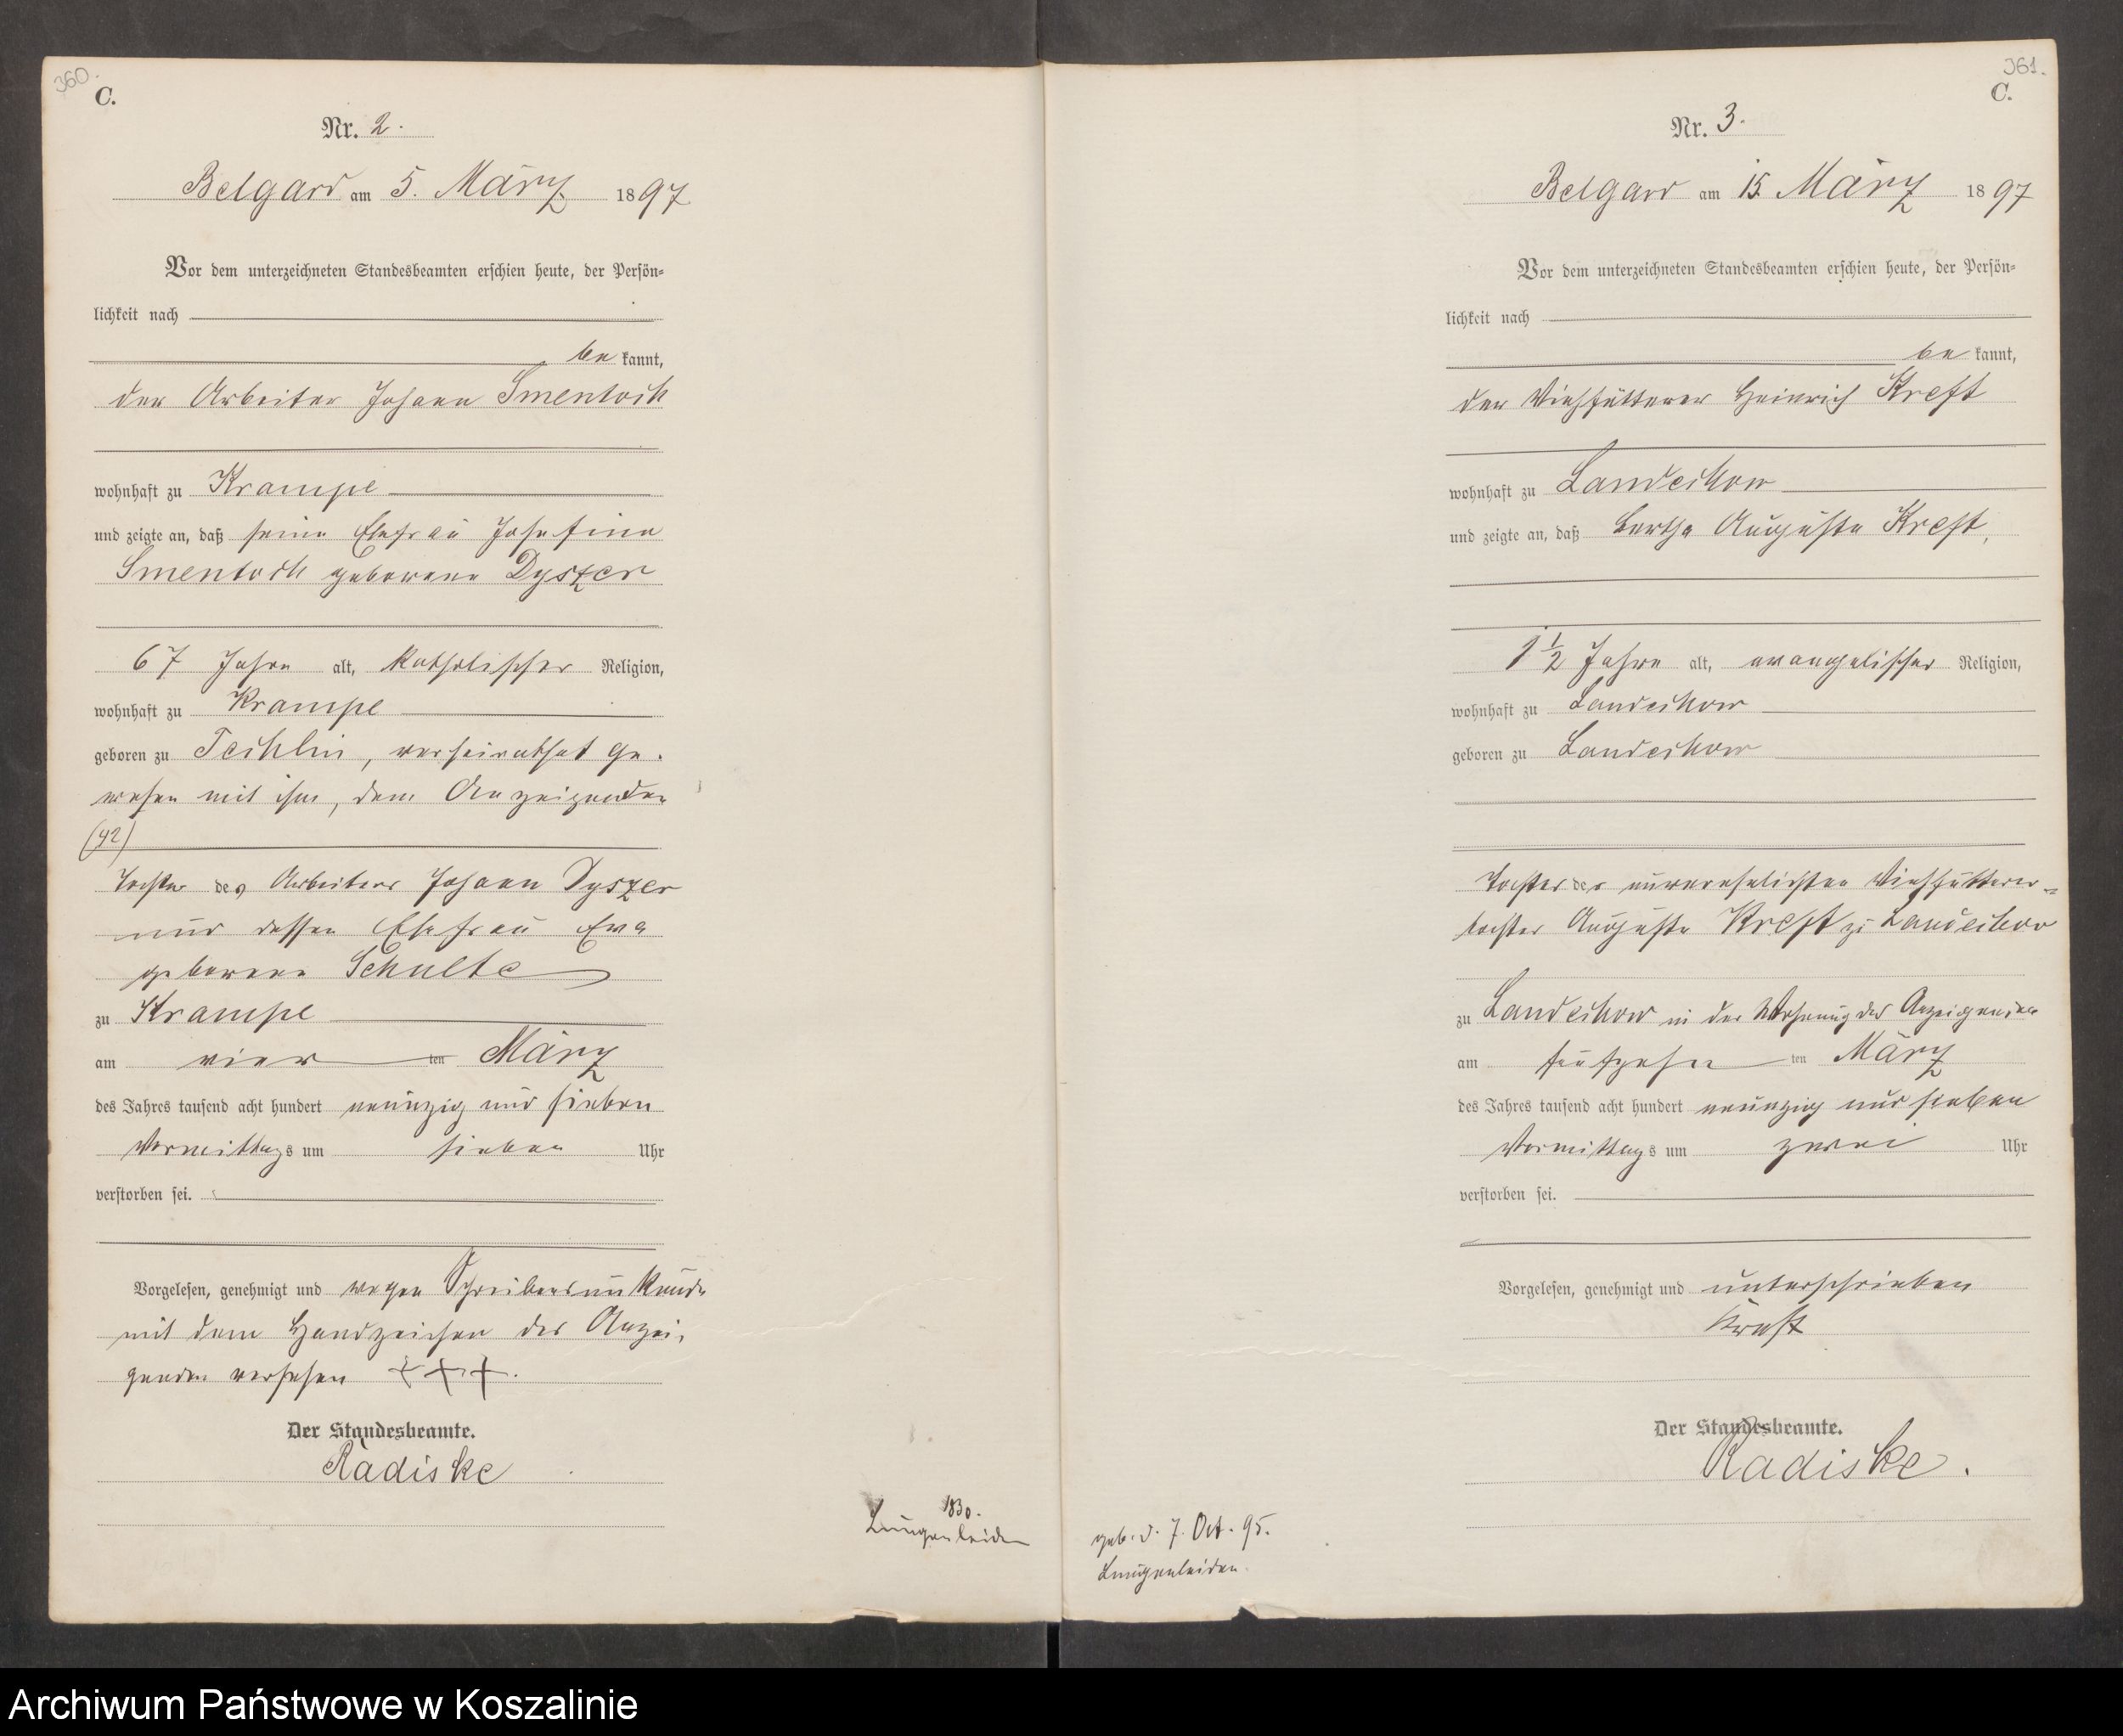 360.
C.
Nr. 2.
Belgard am 5. März 1897
Vor dem unterzeichneten Standesbeamten erschien heute, der Persön-
lichkeit nach
be kannt,
der Arbeiter Johann Smentoch
wohnhaft zu Krampe
und zeigte an, daß seine Ehefrau Josefine
Smentoch geborene Dyszer
67 Jahre alt, katholischer Religion,
wohnhaft zu Krampe
geboren zu Teschlin, verheirathet ge-
wesen mit ihm, dem Anzeigenden
(42)
Tochter des Arbeiters Johann Dyszer
und dessen Ehefrau Eva
geborene Schulte
zu Krampe
am vier ten März
des Jahres tausend acht hundert neunzig und sieben
Vormittags um sieben Uhr
verstorben sei.
Vorgelesen, genehmigt und wegen Schreibensunkunde
mit dem Handzeichen des Anzei-
genden versehen +++.
Der Standesbeamte.
Radiske
1830.
Lungenleiden
361.
C.
Nr. 3.
Belgard am 15. März 1897
Vor dem unterzeichneten Standesbeamten erschien heute, der Persön-
lichkeit nach
be kannt,
der Viehfütterer Heinrich Kreft
wohnhaft zu Landechow
und zeigte an, daß Bertha Auguste Kreft,
1 1/2 Jahre alt, evangelischer Religion,
wohnhaft zu Landechow
geboren zu Landechow
Tochter der unverehelichten Viehfütterer-
tochter Auguste Kreft zu Landechow
zu Landechow in der Wohnung des Anzeigenden
am fünfzehn ten März
des Jahres tausend acht hundert neunzig und sieben
Vormittags um zwei Uhr
verstorben sei.
Vorgelesen, genehmigt und unterschrieben
Kreft
Der Standesbeamte.
Radiske.
geb. d. 7. Oct. 95.
Lungenleiden.
Archiwum Państwowe w Koszalinie